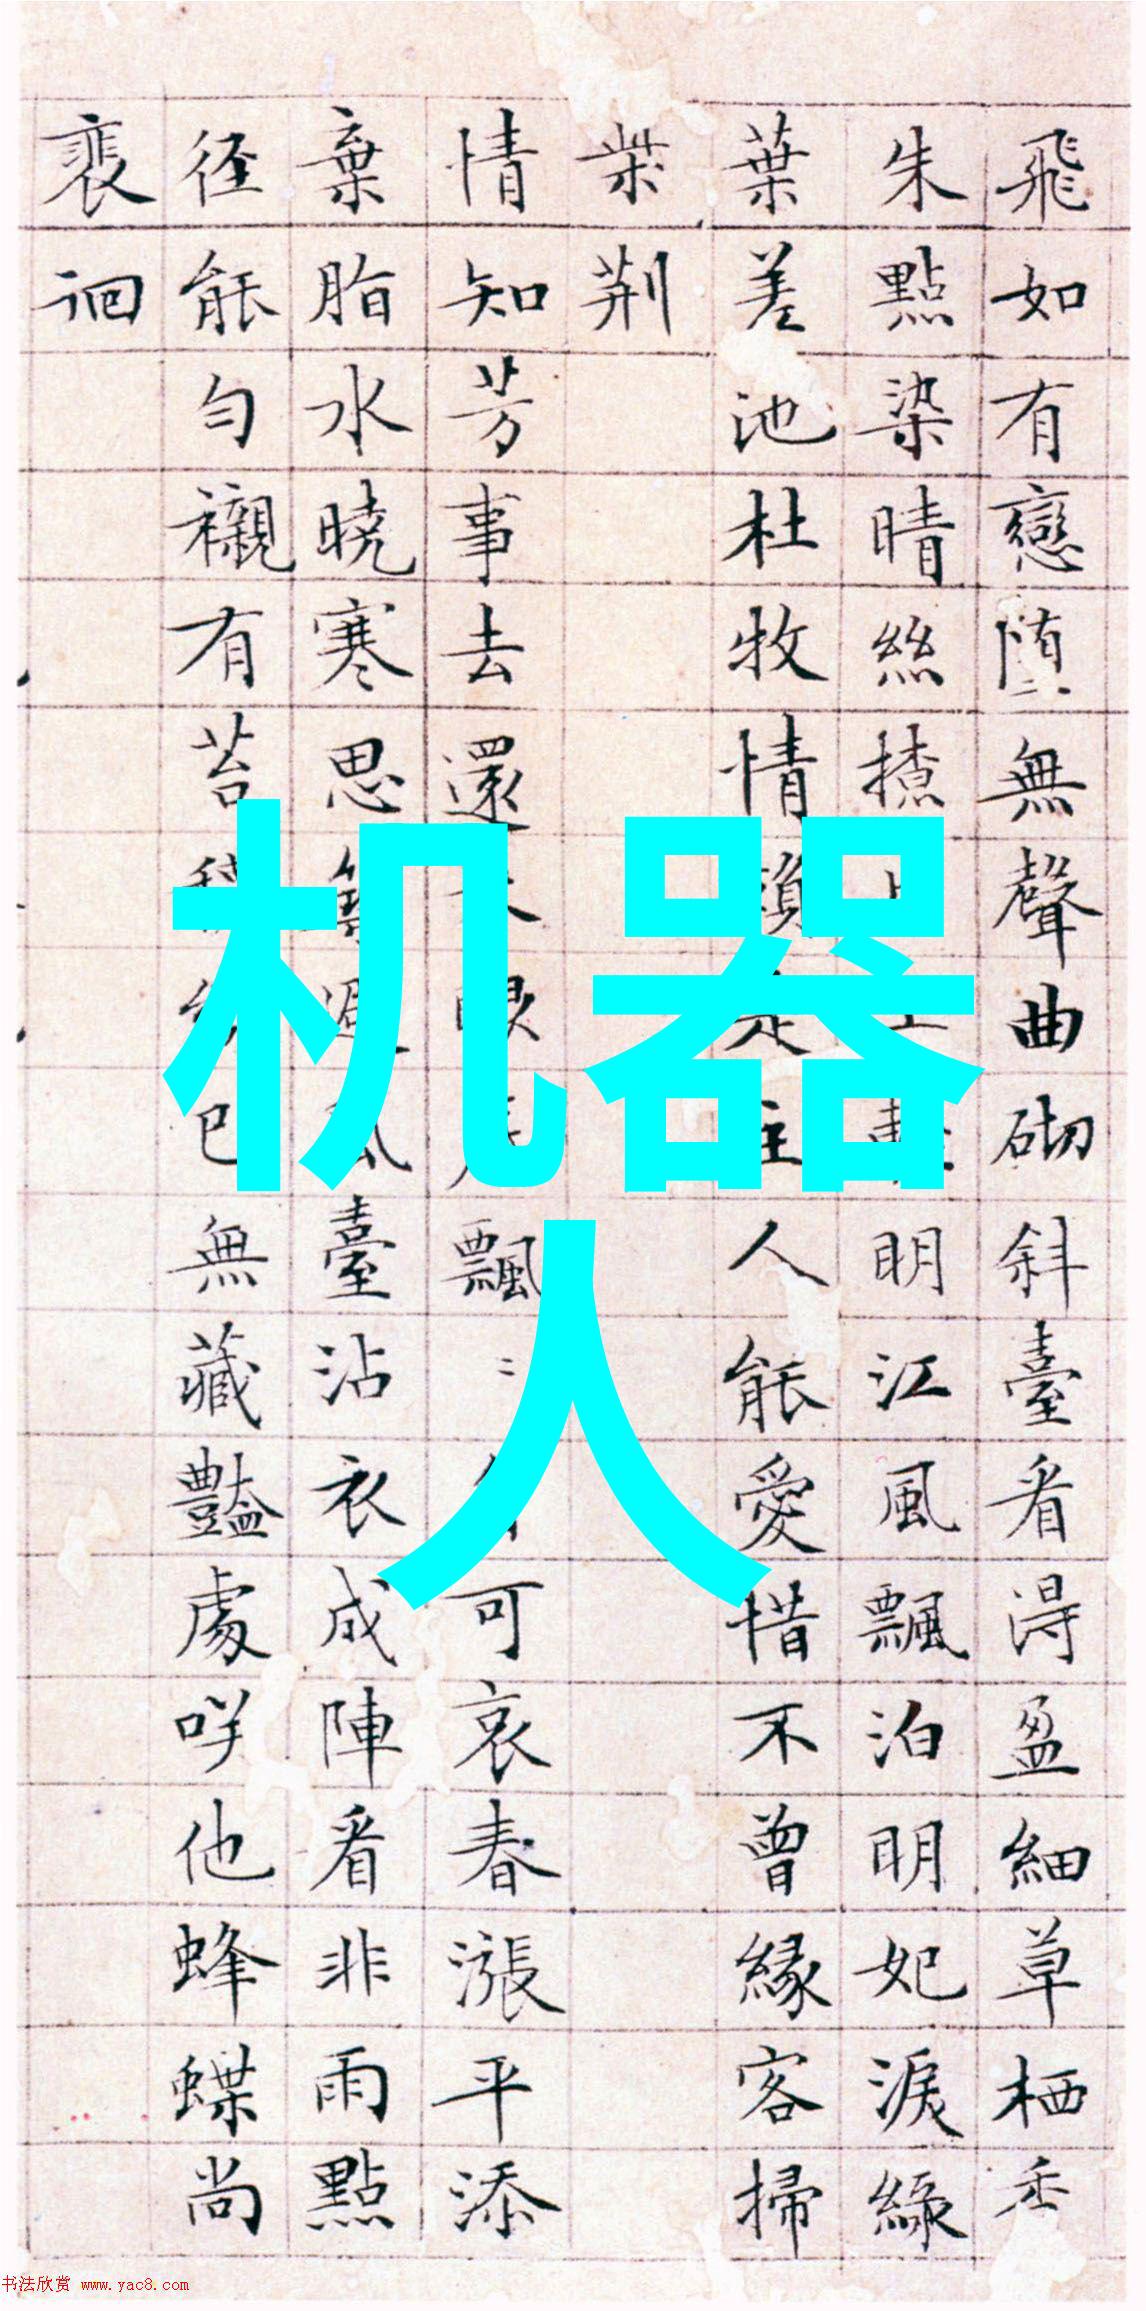 飛如有戀堕無聲曲砌斜臺看得盈細草栖香
朱點染晴絲撩明江風飄泊明妃淚綠
葉差池杜牧情人能愛惜不曾緣客掃
柴荆
情知芳事去還飄可哀春漲平添
棄脂水曉寒思臺沾衣成陣看非雨點
径能勻襯有苔無藏豔處咲他蜂蝶尚
裵徊
机器
人
书法欣赏 www.yac8.com